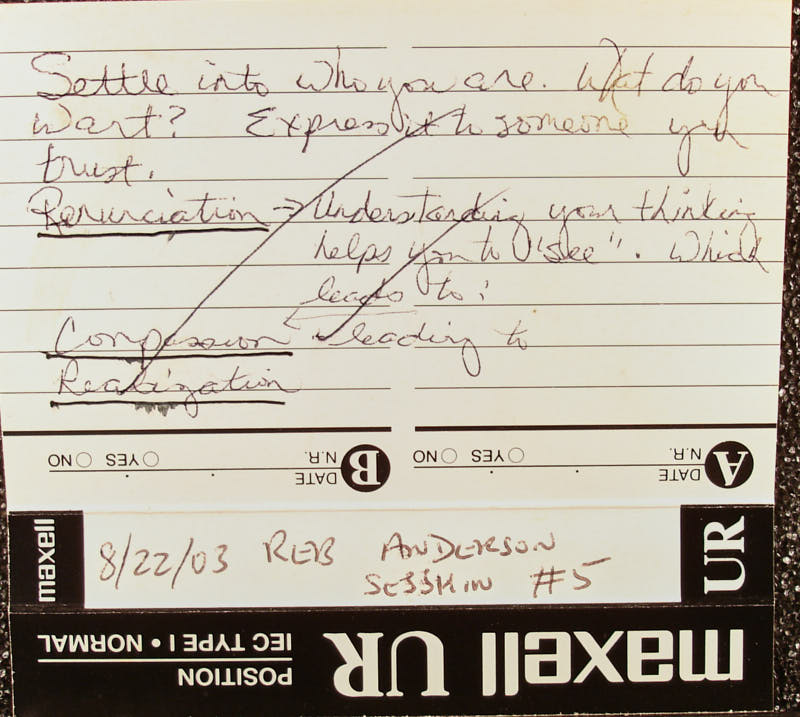 Settle into who you are. What do you
want? Express it to someone you
trust.
Renunciation → Understanding your thinking
helps you to "see". Which
leads to:
Compassion - leading to
Realization
B DATE N.R. YES NO
A DATE N.R. YES NO
maxell
8/22/03 REB ANDERSON
SESSKIN #5
UR
maxell UR
POSITION
IEC TYPE I • NORMAL